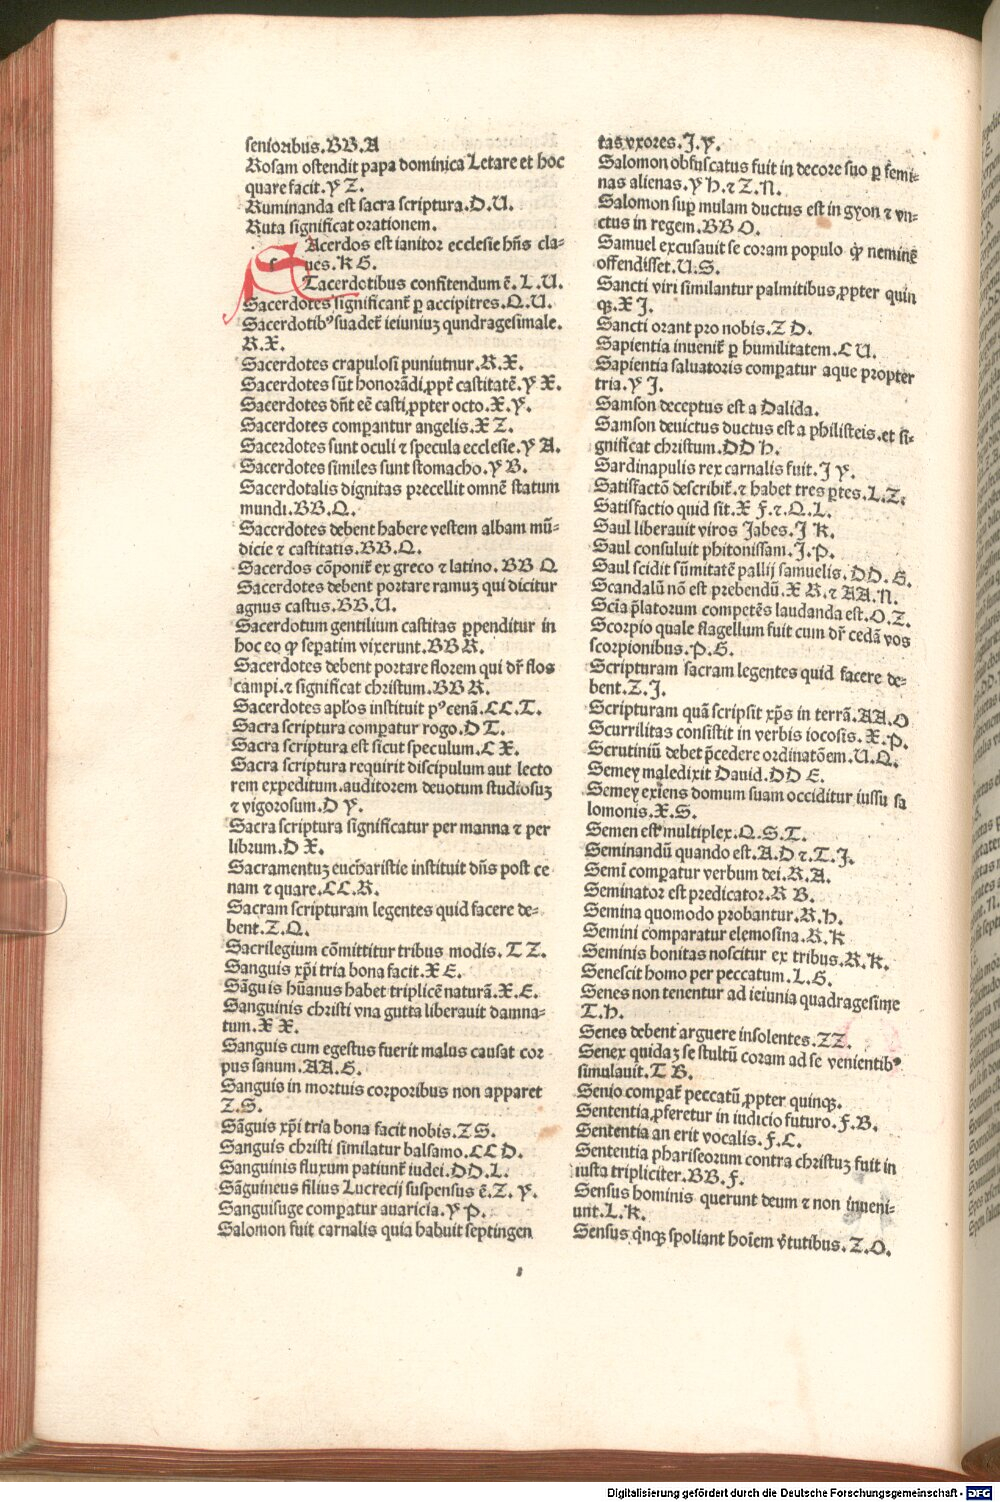 senioribus.BB.A
Rosam ostendit papa dominica Letare et hoc
quare facit.Y Z.
Ruminanda est sacra scriptura.D.U.
Ruta significat orationem.
SAcerdos est ianitor ecclesie hñs cla-
ues.K G.
Tacerdotibus confitendum ē.L.U.
Sacerdotes significant᷑ ꝑ accipitres.Q.U.
Sacerdotibꝰ suadet᷑ ieiuniuꝫ qundragesimale.
R.X.
Sacerdotes crapulosi puniutnur.R.X.
Sacerdotes sūt honorādi ꝓpt᷑ castitatē.Y X.
Sacerdotes dñt eē casti ꝓpter octo.X.Y.
Sacerdotes comꝑantur angelis.X Z.
Sacezdotes sunt oculi ⁊ specula ecclesie.Y A.
Sacerdotes similes sunt stomacho.Y B.
Sacerdotalis dignitas precellit omnē statum
mundi.BB.Q.
Sacerdotes debent habere vestem albam mū-
dicie ⁊ castitatis.BB.Q.
Sacerdos cōponit᷑ ex greco ⁊ latino.BB Q
Sacerdotes debent portare ramuꝫ qui dicitur
agnus castus.BB.U.
Sacerdotum gentilium castitas ꝑpenditur in
hoc eo ꝙ seꝑatim vixerunt.BB R.
Sacerdotes debent portare florem qui dr̄ flos
campi.⁊ significat christum.BB R.
Sacerdotes apƚos instituit pꝰ cenā.CC.T.
Sacra scriptura comꝑatur rogo.D T.
Sacra scriptura est sicut speculum.C X.
Sacra scriptura requirit discipulum aut lecto
rem expeditum.auditorem deuotum studiosuꝫ
⁊ vigorosum.D Y.
Sacra scriptura significatur per manna ⁊ per
librum.D X.
Sacramentuꝫ eucharistie instituit dñs post ce
nam ⁊ quare.CC.R.
Sacram scripturam legentes quid facere de-
bent.Z.Q.
Sacrilegium cōmittitur tribus modis.T Z.
Sanguis xp̄i tria bona facit.X E.
Sāguis hūanus habet triplicē naturā.X.E.
Sanguinis christi vna gutta liberauit damna-
tum.X X.
Sanguis cum egestus fuerit malus causat cor
pus sanum.AA.G.
Sanguis in mortuis corporibus non apparet
Z.S.
Sāguis xp̄i tria bona facit nobis.Z S.
Sanguis christi similatur balsamo.CC D.
Sanguinis fluxum patiunt᷑ iudei.DD.L.
Sāguineus filius Lucrecij suspensus ē.Z.Y.
Sanguisuge comꝑatur auaricia.Y P.
Salomon fuit carnalis quia habuit septingen
tas vxores.J.Y.
Salomon obfuscatus fuit in decore suo ꝑ femi-
nas alienas.Y h.⁊ Z.N.
Salomon suꝑ mulam ductus est in gyon ⁊ vn-
ctus in regem.BB O.
Samuel excusauit se coram populo ꝙ neminē
offendisset.U.S.
Sancti viri similantur palmitibus ꝓpter quin
qꝫ.X J.
Sancti orant pro nobis.Z D.
Sapientia inuenit᷑ ꝑ humilitatem.C U.
Sapientia saluatoris comꝑatur aque propter
tria.Y J.
Samson deceptus est a Dalida.
Samson deuictus ductus est a philisteis.et si-
gnificat christum.DD h.
Sardinapulis rex carnalis fuit.J Y.
Satisfactō describit᷑.⁊ habet tres ꝑtes.L.Z.
Satisfactio quid sit.X F.⁊.Q.L.
Saul liberauit viros Jabes.J K.
Saul consuluit phitonissam.J.P.
Saul scidit sūmitatē pallij samuelis.DD.G.
Scandalū nō est prebendū.X R.⁊ AA.N.
Scīa p̄latorum competēs laudanda est.O.Z.
Scorpio quale flagellum fuit cum dr̄ cedā vos
scorpionibus.P.G.
Scripturam sacram legentes quid facere de-
bent.Z.J.
Scripturam quā scripsit xp̄s in terrā.AA.O
Scurrilitas consistit in verbis iocosis.X.P.
Scrutiniū debet p̄cedere ordinatōem.U.Q.
Semey maledixit Dauid.DD E.
Semey exiens domum suam occiditur iussu sa
lomonis.X.S.
Semen est multiplex.Q.S.T.
Seminandū quando est.A.D ⁊.T.J.
Semī comꝑatur verbum dei.R.A.
Seminator est predicator.R B.
Semina quomodo probantur.R.h.
Semini comparatur elemosina.R.K
Seminis bonitas noscitur ex tribus.R.K.
Senescit homo per peccatum.L.G.
Senes non tenentur ad ieiunia quadragesime
T.h.
Senes debent arguere insolentes.ZZ.
Senex quidaꝫ se stultū coram ad se venientibꝰ
simulauit.T B.
Senio comꝑat᷑ peccatū ꝓpter quinqꝫ.
Sententia ꝓferetur in iudicio futuro.F.B.
Sententia an erit vocalis.F.C.
Sententia phariseorum contra christuꝫ fuit in
iusta tripliciter.BB.F.
Sensus hominis querunt deum ⁊ non inueni-
unt.L.K.
Sensus qͥnqꝫ spoliant hoīem v̓tutibus.Z.O.
Digitalisierung gefördert durch die Deutsche Forschungsgemeinschaft - DFG